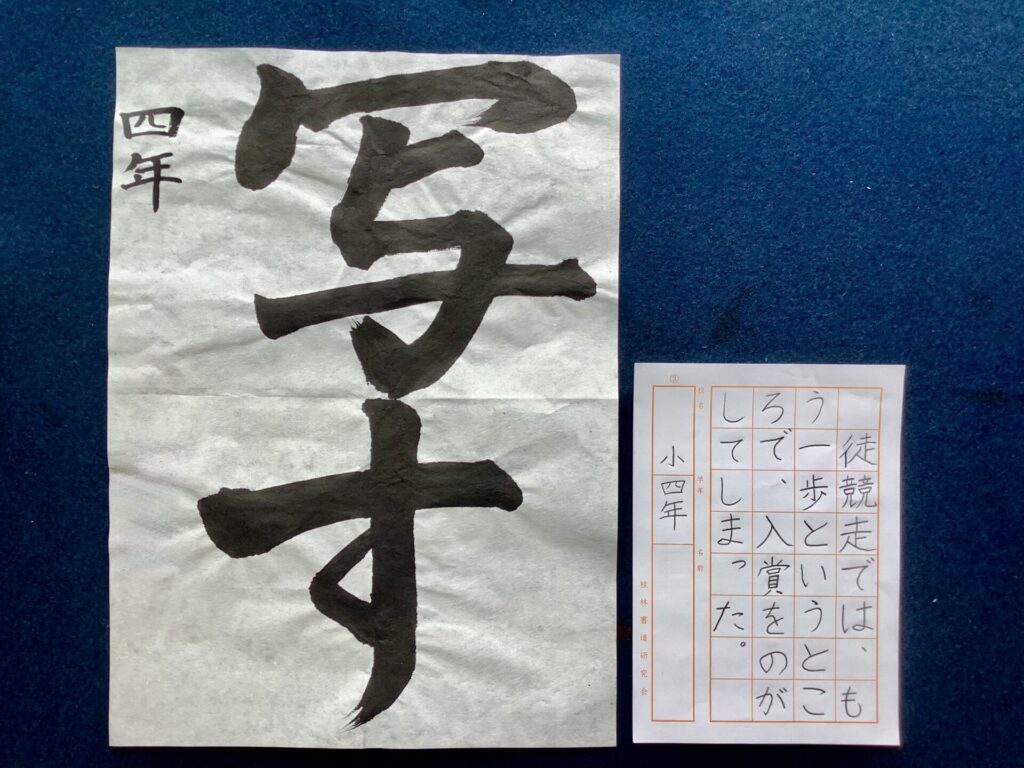 写す
四年
徒競走では、も
う一歩というとこ
ろで、入賞をのが
してしまった。
③
校名
学年
名前
小四年
桂林書道研究会